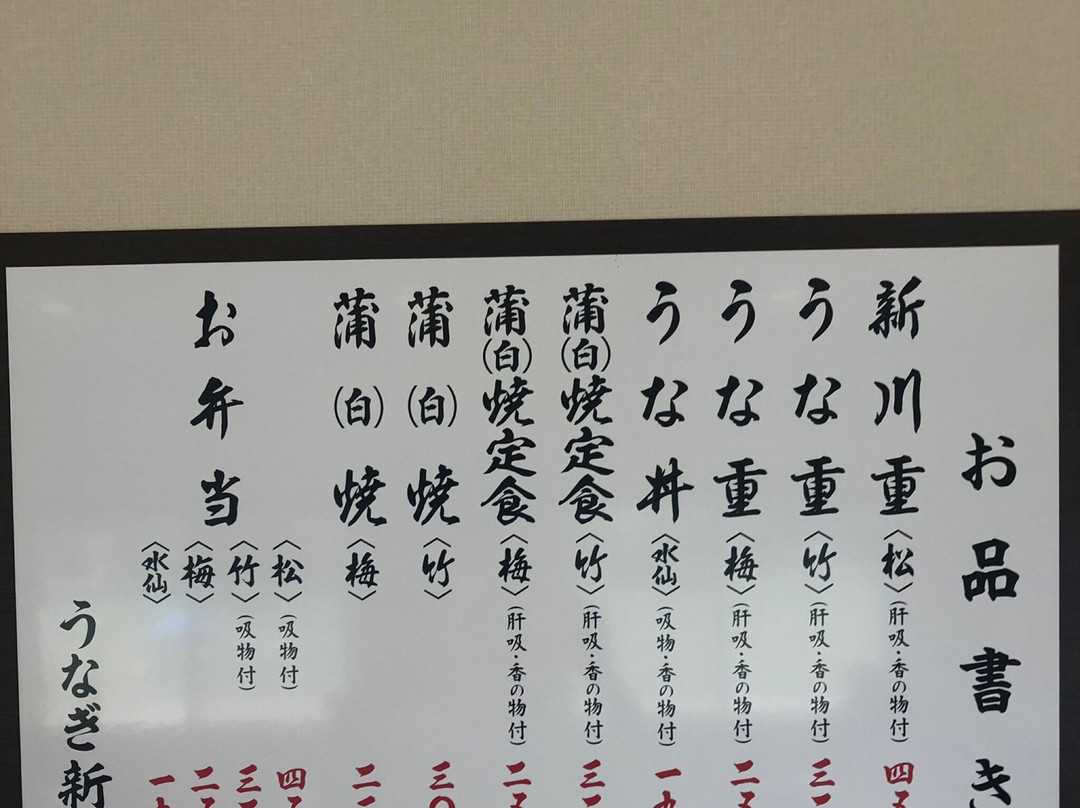 お品書き
新川重〈松〉(肝吸・香の物付)四
うな重〈竹〉(肝吸・香の物付)三
うな重〈梅〉(肝吸・香の物付)二
うな丼〈水仙〉(吸物・香の物付)一九
蒲(白)焼定食〈竹〉(肝吸・香の物付)三
蒲(白)焼定食〈梅〉(肝吸・香の物付)二
蒲(白)焼〈竹〉三〇
蒲(白)焼〈梅〉二
お弁当
〈松〉(吸物付)四
〈竹〉(吸物付)三
〈梅〉二
〈水仙〉一
うなぎ新